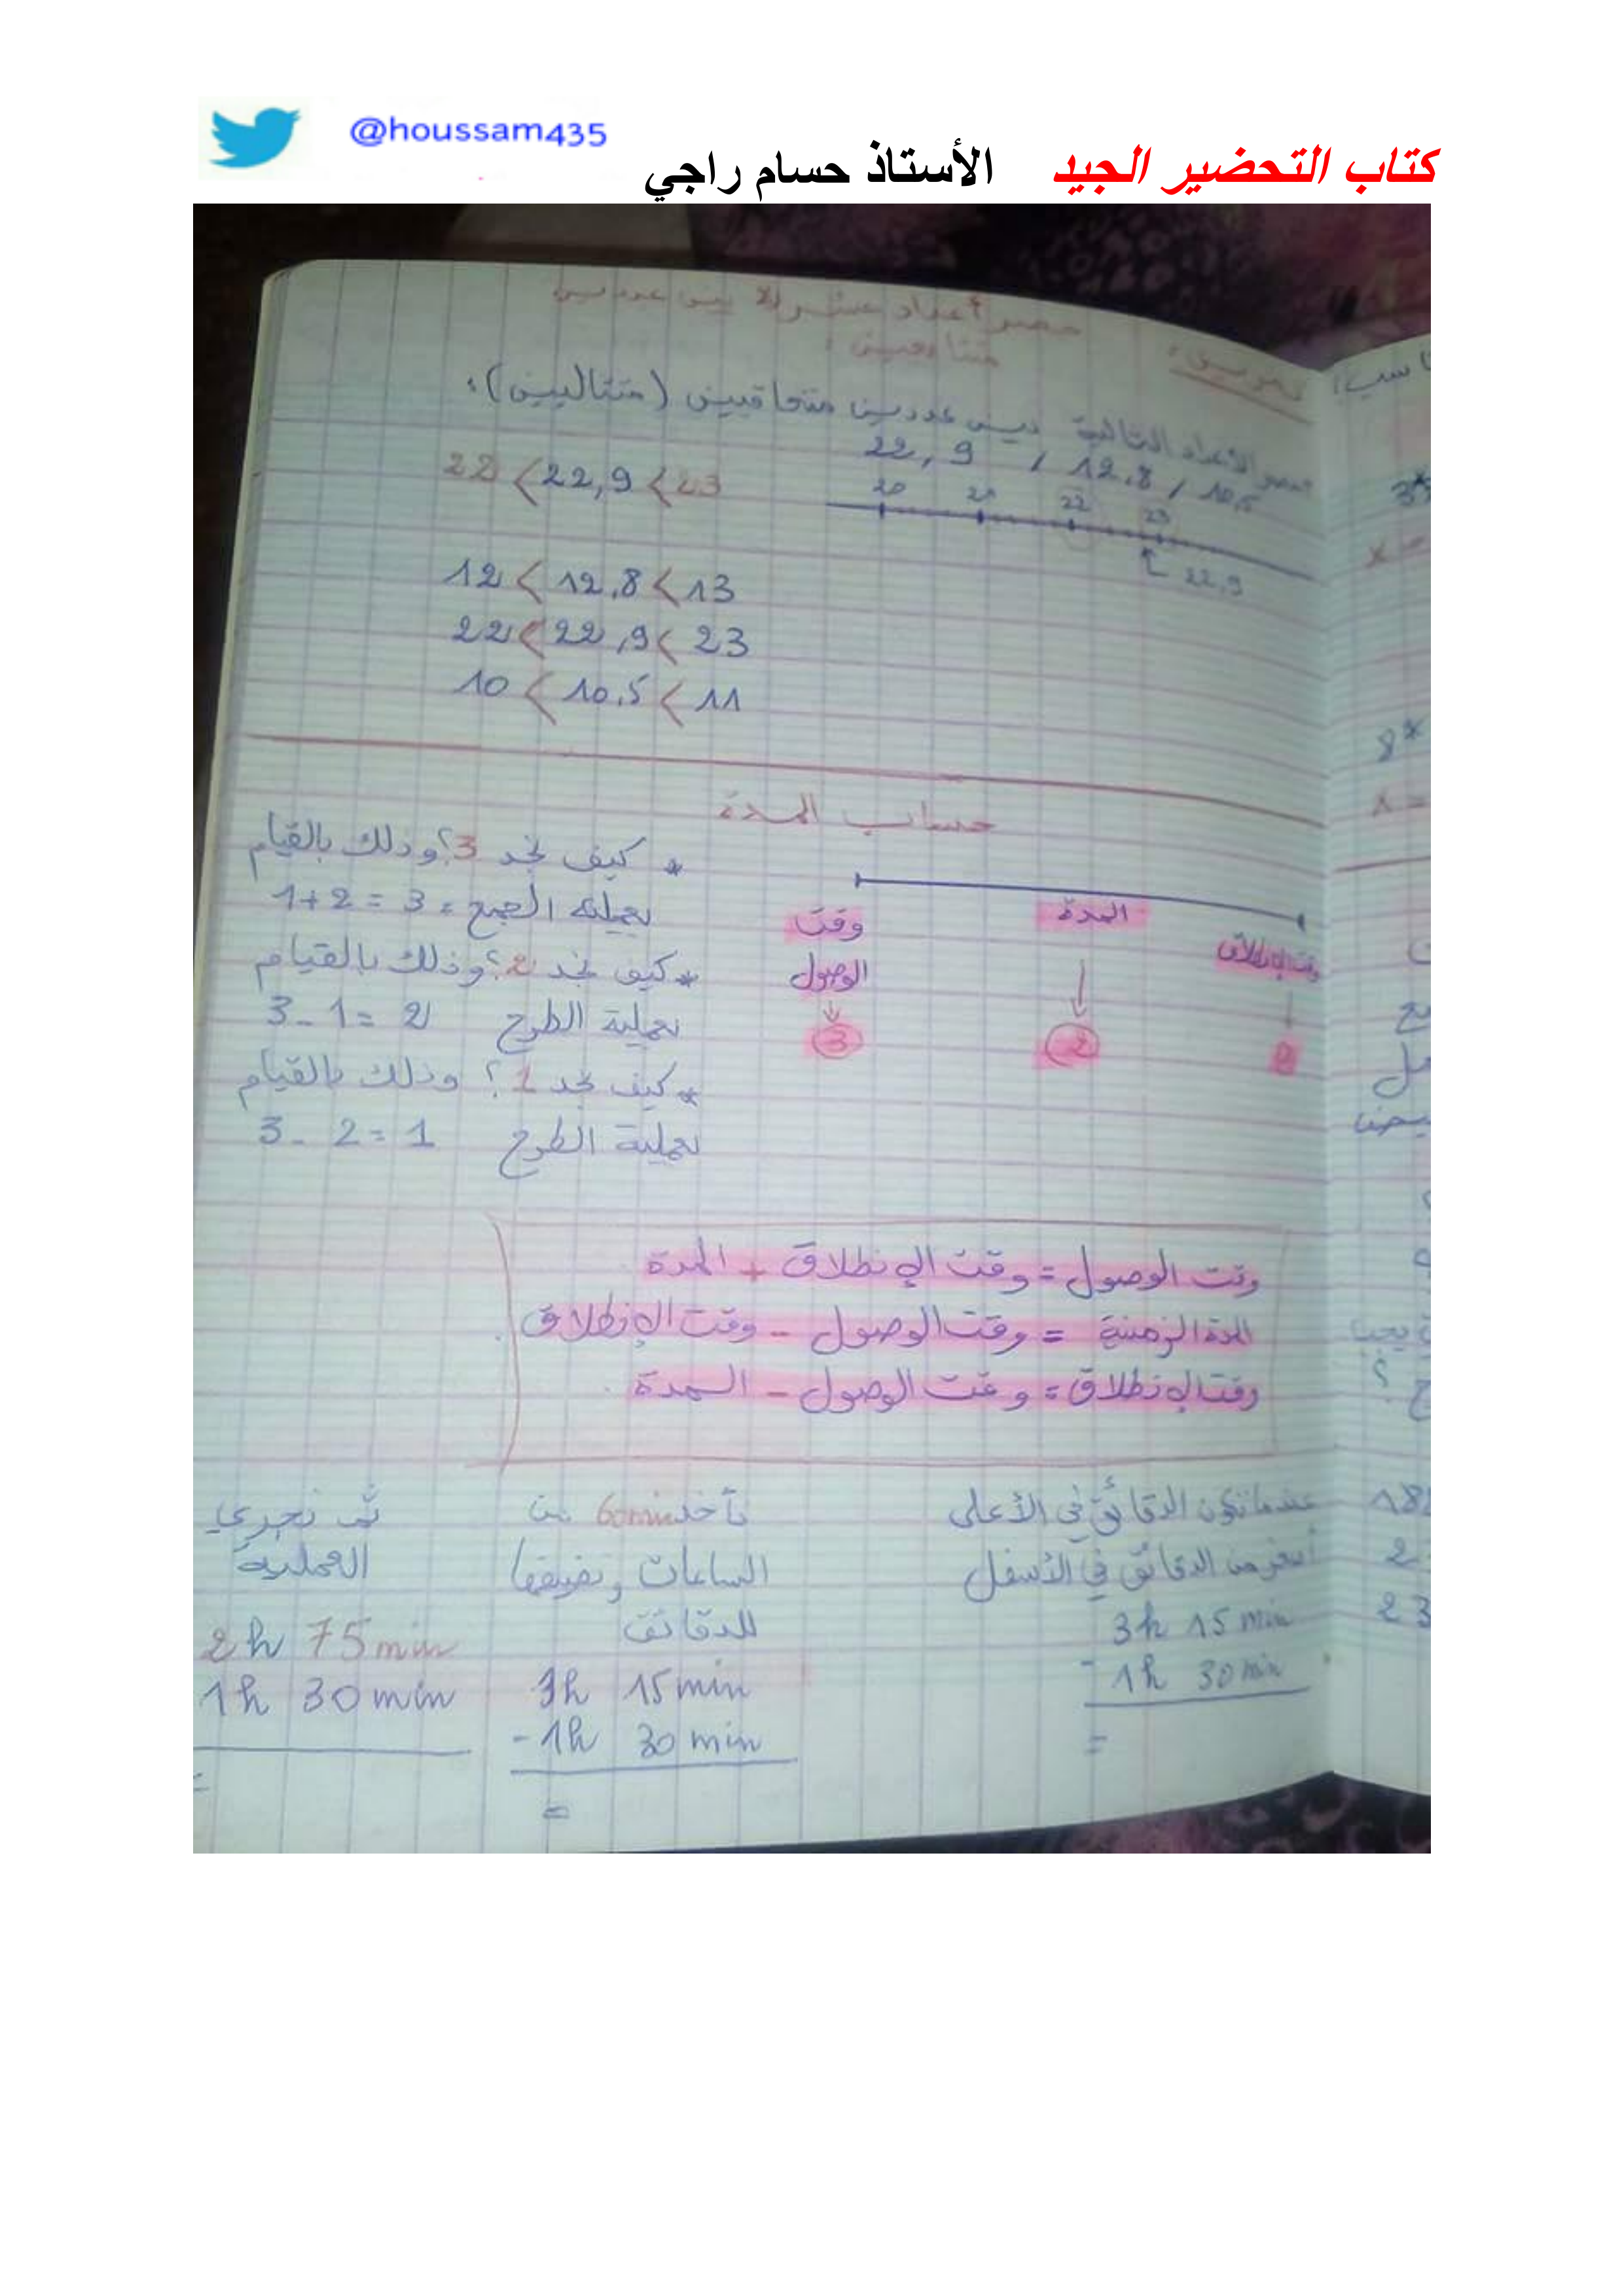 @houssam435
كتاب التحضير الجيد الأستاذ حسام راجي
حصر أعداد عشرية بين عددين
متتابعين :
الأعداد التالية بين عددين متعاقبين (متتاليين):
22,9 , 12.8 , 10,5
22 < 22,9 < 23
20 21 22 23
22.9
12 < 12.8 < 13
22 < 22,9 < 23
10 < 10.5 < 11
حساب المدة
وقت الإنطلاق
المدة
2
وقت
الوصول
3
* كيف نجد 3؟ وذلك بالقيام
بعملية الجمع 1+2 = 3
* كيف نجد 2؟ وذلك بالقيام
بعملية الطرح 3 - 1 = 2
* كيف نجد 1؟ وذلك بالقيام
بعملية الطرح 3 - 2 = 1
وقت الوصول = وقت الإنطلاق + المدة
المدة الزمنية = وقت الوصول - وقت الإنطلاق.
وقت الإنطلاق = وقت الوصول - المدة.
عندما تكون الدقائق في الأعلى
أصغر من الدقائق في الأسفل
3h 15 min
- 1h 30 min
=
نأخذ 60min من
الساعات ونضيفها
للدقائق
3h 15 min
- 1h 30 min
=
ثم نجري
العملية
2h 75 min
1h 30 min
=